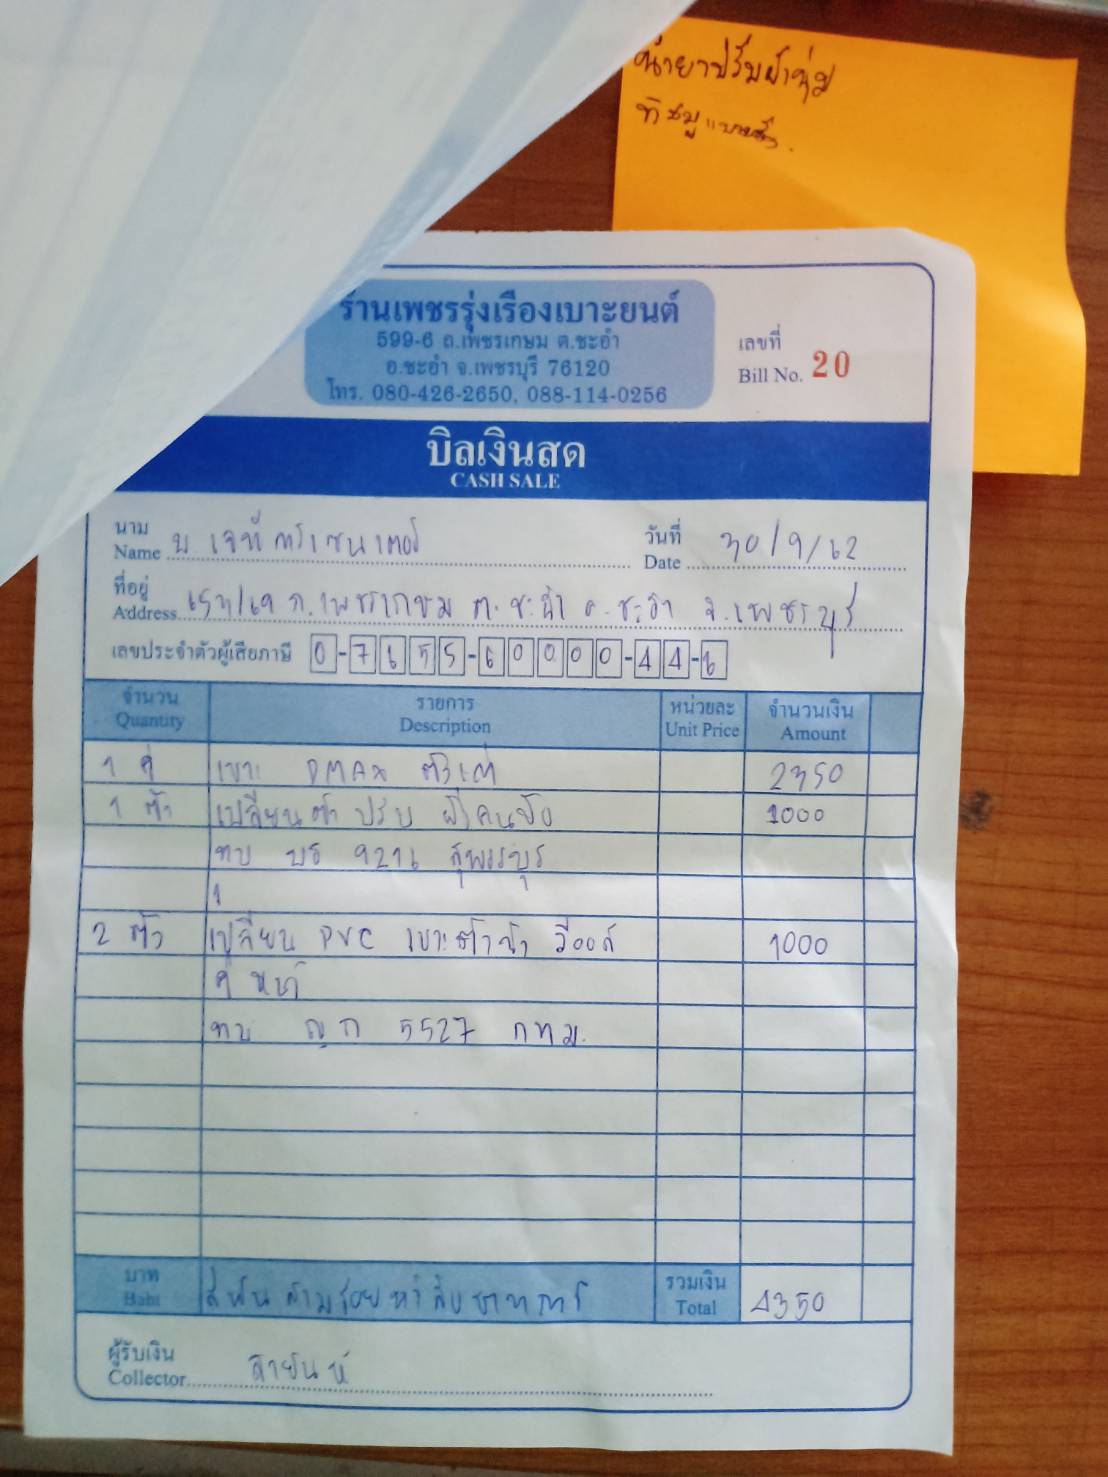 น้ำยาปรับผ้านุ่ม
ทิชชู
ร้านเพชรรุ่งเรืองเบาะยนต์
599-6 ถ.เพชรเกษม ต.ชะอำ
อ.ชะอำ จ.เพชรบุรี 76120
โทร. 080-426-2650, 088-114-0256
เลขที่
Bill No. 20
บิลเงินสด
CASH SALE
นาม
Name บ. เจที คาร์เซนเตอร์
วันที่
Date 30/9/62
ที่อยู่
Address ถ.เพชรเกษม ต.ชะอำ อ.ชะอำ จ.เพชรบุรี
เลขประจำตัวผู้เสียภาษี 0-7655-60000-44-6
จำนวน รายการ หน่วยละ จำนวนเงิน
Quantity Description Unit Price Amount
1 คู่ เบาะ DMAX ตัวเก่า 2350
1 ตัว เปลี่ยนตัวปรับ ฝั่งคนขับ 1000
ทบ บร 9216 สุพรรบุร
1
2 ตัว เปลี่ยน PVC เบาะ วีออส 1000
คู่หน้า
ทบ ญก 5527 กทม.
บาท สี่พันสามร้อยห้าสิบบาทถาร รวมเงิน
Baht Total 4350
ผู้รับเงิน
Collector สายันห์